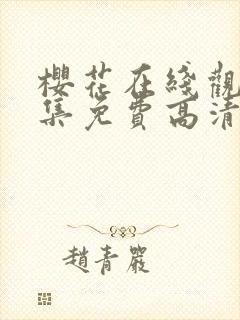 櫻花在綫觀
集免費高清
趙青嚴